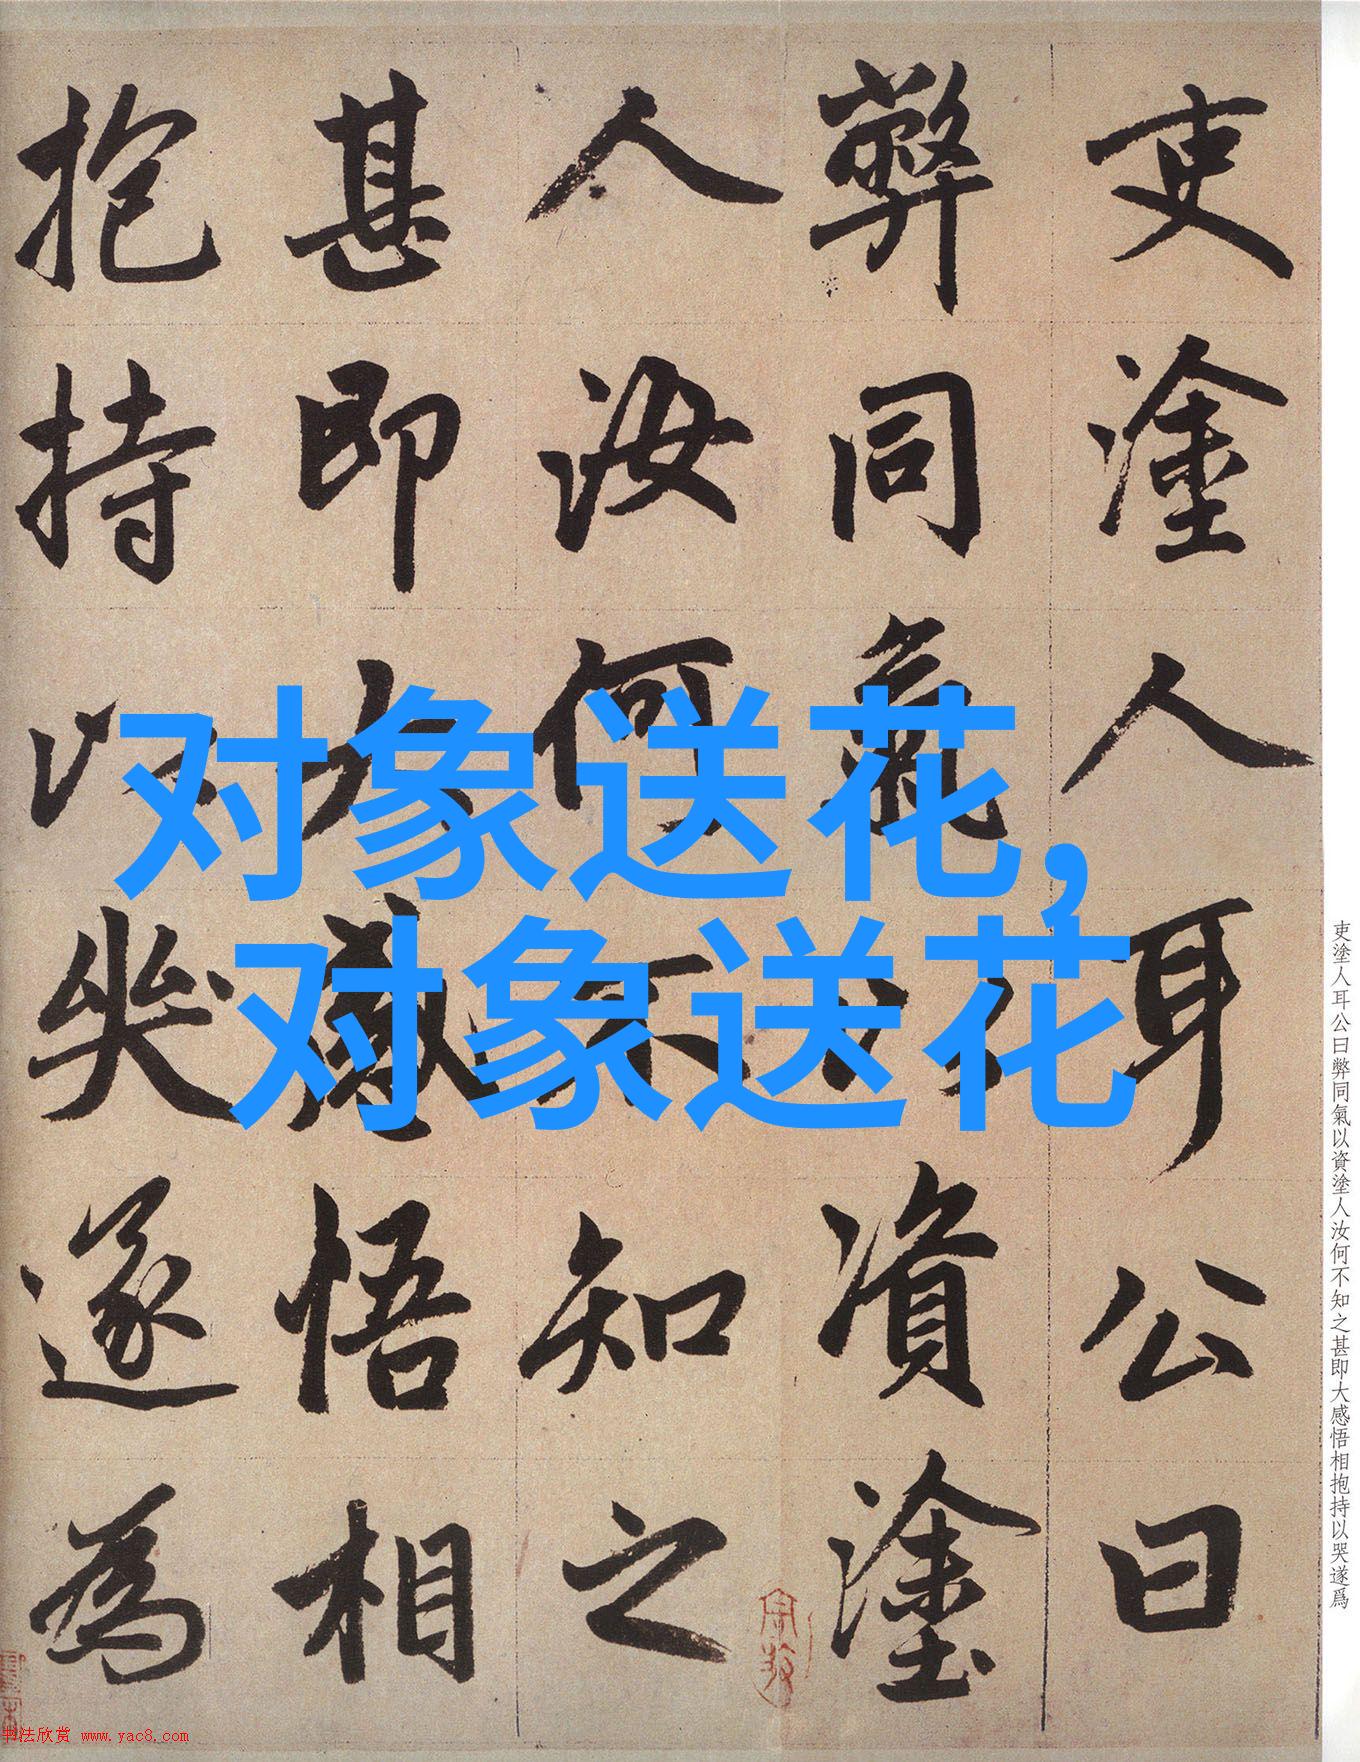 吏塗人耳公曰
弊同氣以資塗
人汝何不知之
甚即大感悟相
抱持以哭遂為
对象送花，
对象送花
吏塗人耳公曰弊同氣以資塗人汝何不知之甚即大感悟相抱持以哭遂爲
书法欣赏 www.yac8.com